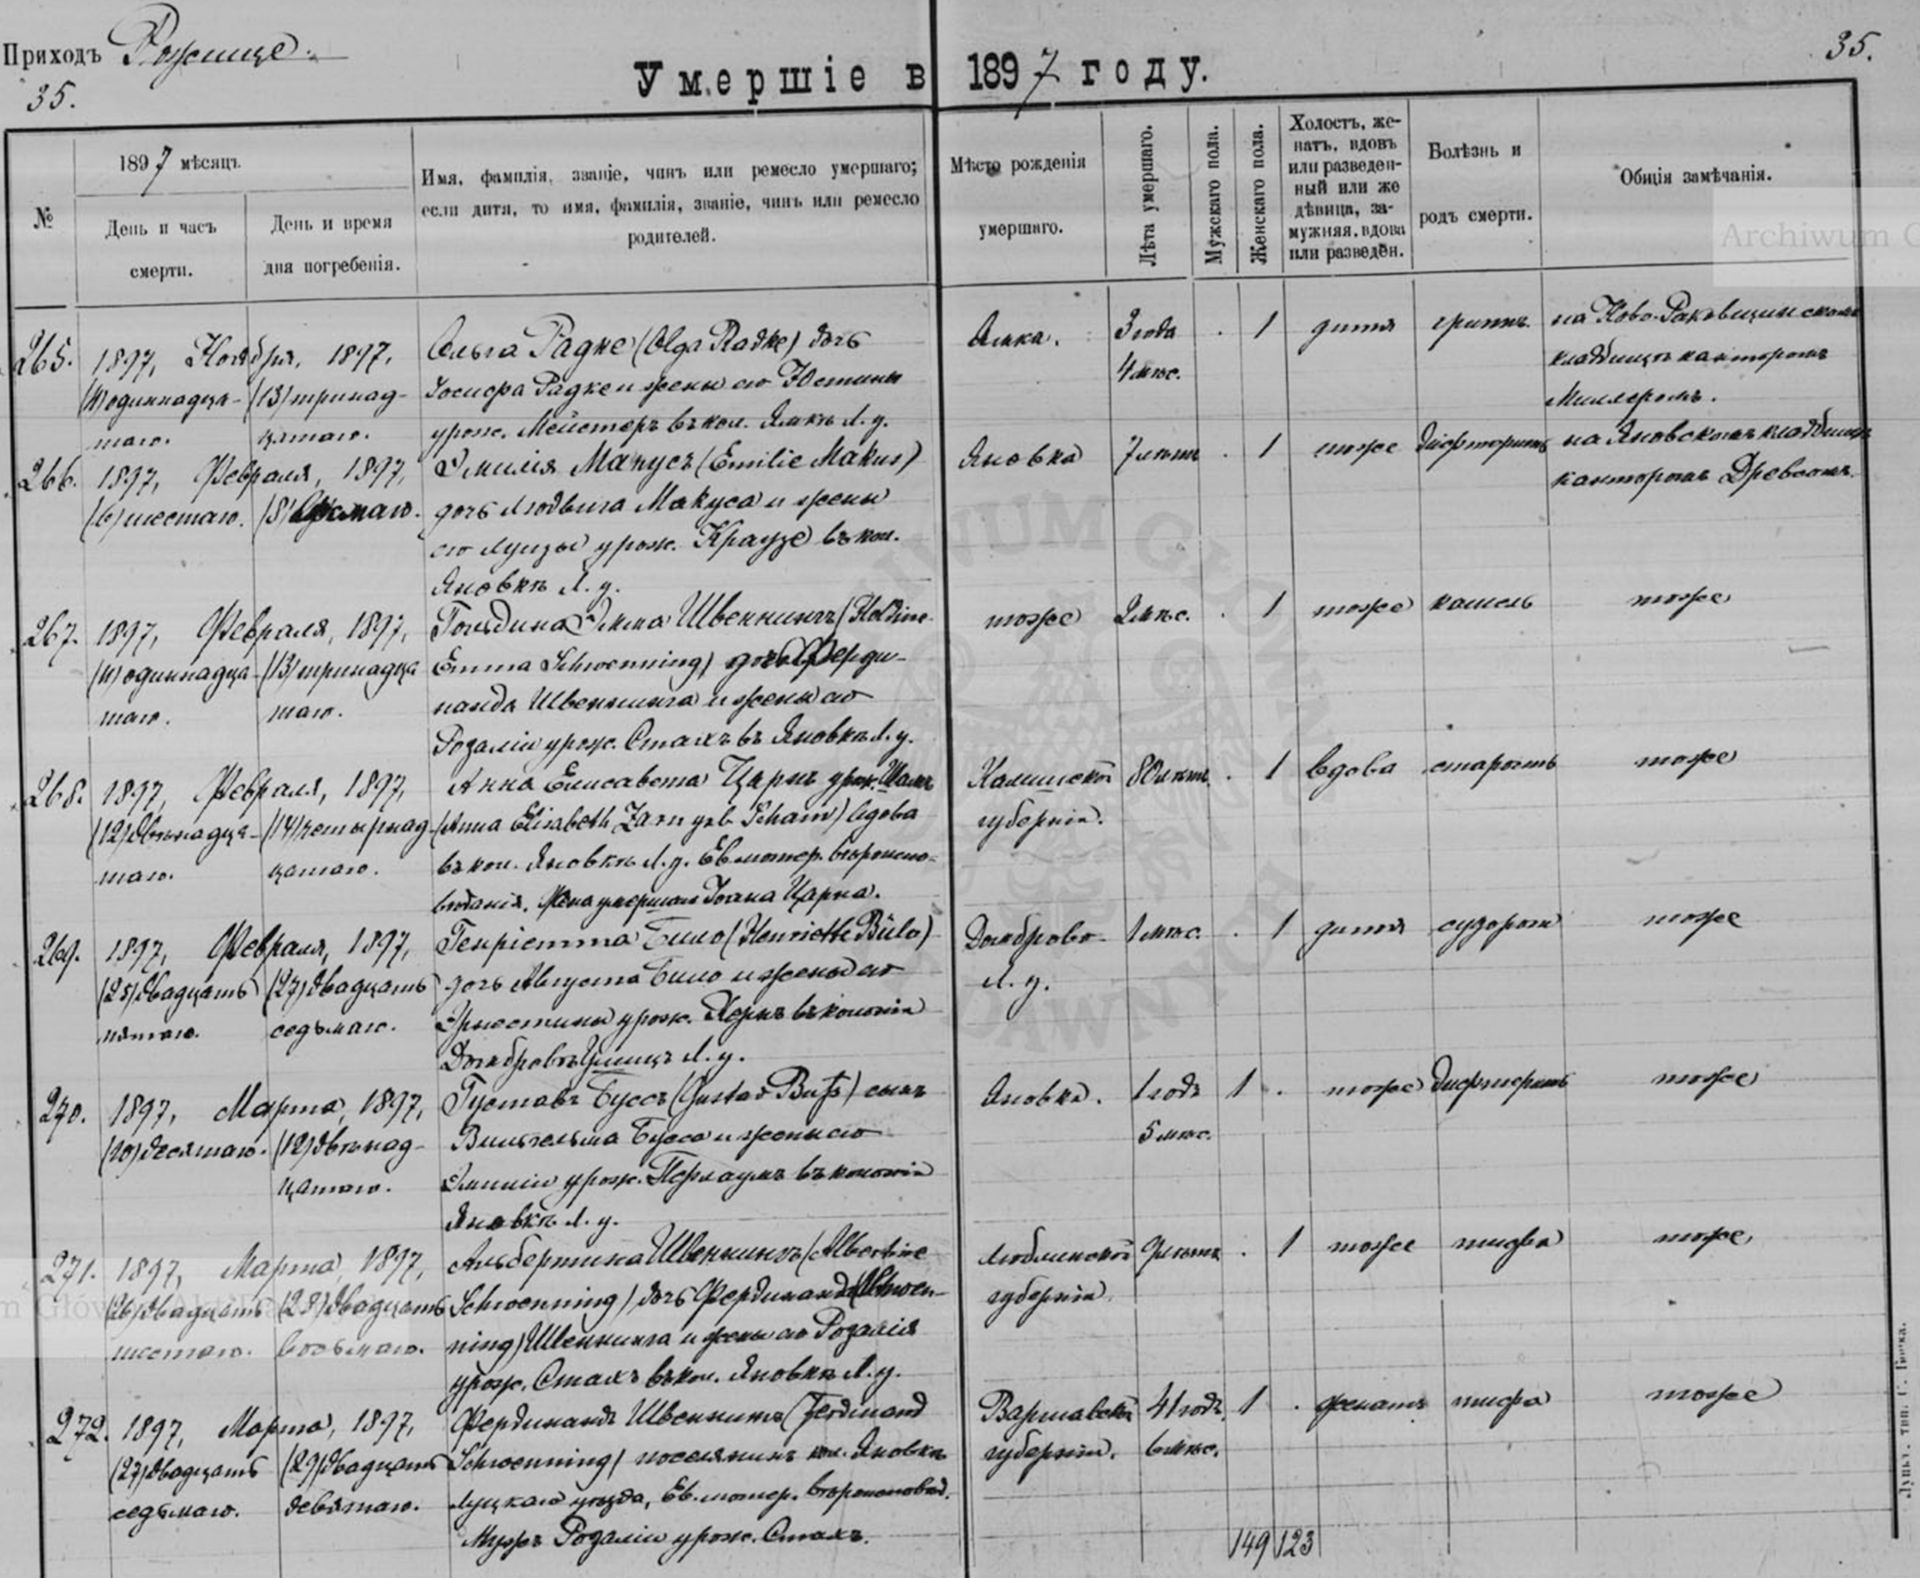 Приходъ Рожище.
35.
35.
Умершіе в 1897 году.
№
1897 мѣсяцъ
День и часъ смерти.
День и время дня погребенія.
Имя, фамилія, званіе, чинъ или ремесло умершаго;
если дитя, то имя, фамилія, званіе, чинъ или ремесло
родителей.
Мѣсто рожденія
умершаго.
Лѣта умершаго.
Мужскаго пола.
Женскаго пола.
Холостъ, же-
натъ, вдовъ
или разведен-
ный или же
дѣвица, за-
мужняя, вдова
или разведен.
Болѣзнь и
родъ смерти.
Общія замѣчанія.
Archiwum G
265. 1897, Ноября, 1897,
(11) одиннадца- (13) тринад-
таго. цатаго.
Ольга Радке (Olga Radke) дочь
Іосифа Радке и жены его Юстины
урож. Мейстеръ въ кол. Ямкѣ Л. у.
Ямка. 3 года . 1 дитя гриппъ
4 мѣс.
на Ново-Раковщинскомъ
кладбищѣ канторомъ
Миллеромъ.
266. 1897, Февраля, 1897,
(6) шестаго. (8) восьмаго.
Эмилія Макусъ (Emilie Makus)
дочь Людвига Макуса и жены
его Луизы урож. Краузе въ кол.
Яновкѣ Л. у.
Яновка 7 лѣтъ . 1 тоже дифтеритъ
на Яновскомъ кладбищѣ
канторомъ Древсомъ.
267. 1897, Февраля, 1897,
(11) одиннадца- (13) тринадца
таго. таго.
Гольдина Эмма Швеннингъ (Holdine
Emma Schwenning) дочь Ферди-
нанда Швеннинга и жены его
Розаліи урож. Стахъ въ Яновкѣ Л. у.
тоже 2 мѣс. . 1 тоже кашель тоже
268. 1897, Февраля, 1897,
(12) двѣнадца- (14) четырнад-
таго. цатаго.
Анна Елисавета Царнъ урож. Шамъ
(Anna Elisabeth Zarn geb Scham) вдова
въ кол. Яновкѣ Л. у. Ев. лютер. вѣроиспо-
вѣданія. Жена умершаго Іоана Царна.
Калишской 80 лѣтъ . 1 вдова старость тоже
губерніи.
269. 1897, Февраля, 1897,
(25) двадцать (27) двадцать
пятаго. седьмаго.
Генріетта Било (Henriette Bülo)
дочь Августа Било и жены его
Эрнестины урож. Кернъ въ колоніи
Домбровѣ Л. у.
Домброва 1 мѣс. . 1 дитя судороги тоже
Л. у.
270. 1897, Марта, 1897,
(10) десятаго. (12) двѣнад-
цатаго.
Густавъ Буссъ (Gustav Buß) сынъ
Вильгельма Бусса и жены его
Эмиліи урож. Перлаумъ въ колоніи
Яновкѣ Л. у.
Яновка. 1 годъ 1 . тоже дифтеритъ тоже
5 мѣс.
271. 1897, Марта, 1897,
(26) двадцать (28) двадцать
шестаго. восьмаго.
Альбертина Швеннингъ (Albertine
Schwenning) дочь Фердинанда (Schwen-
ning) Швеннинга и жены его Розалія
урож. Стахъ въ кол. Яновкѣ Л. у.
Люблинской 9 лѣтъ . 1 тоже тифа тоже
губерніи
272. 1897, Марта, 1897,
(27) двадцать (29) двадцать
седьмаго. девятаго.
Фердинандъ Швеннингъ (Ferdinand
Schwenning) поселянинъ кол. Яновкѣ
Луцкаго уѣзда, Ев. лютер. вѣроисповѣд.
Мужъ Розаліи урож. Стахъ.
Варшавской 41 годъ 1 . женатъ тифа тоже
губерніи. 6 мѣс.
149 123